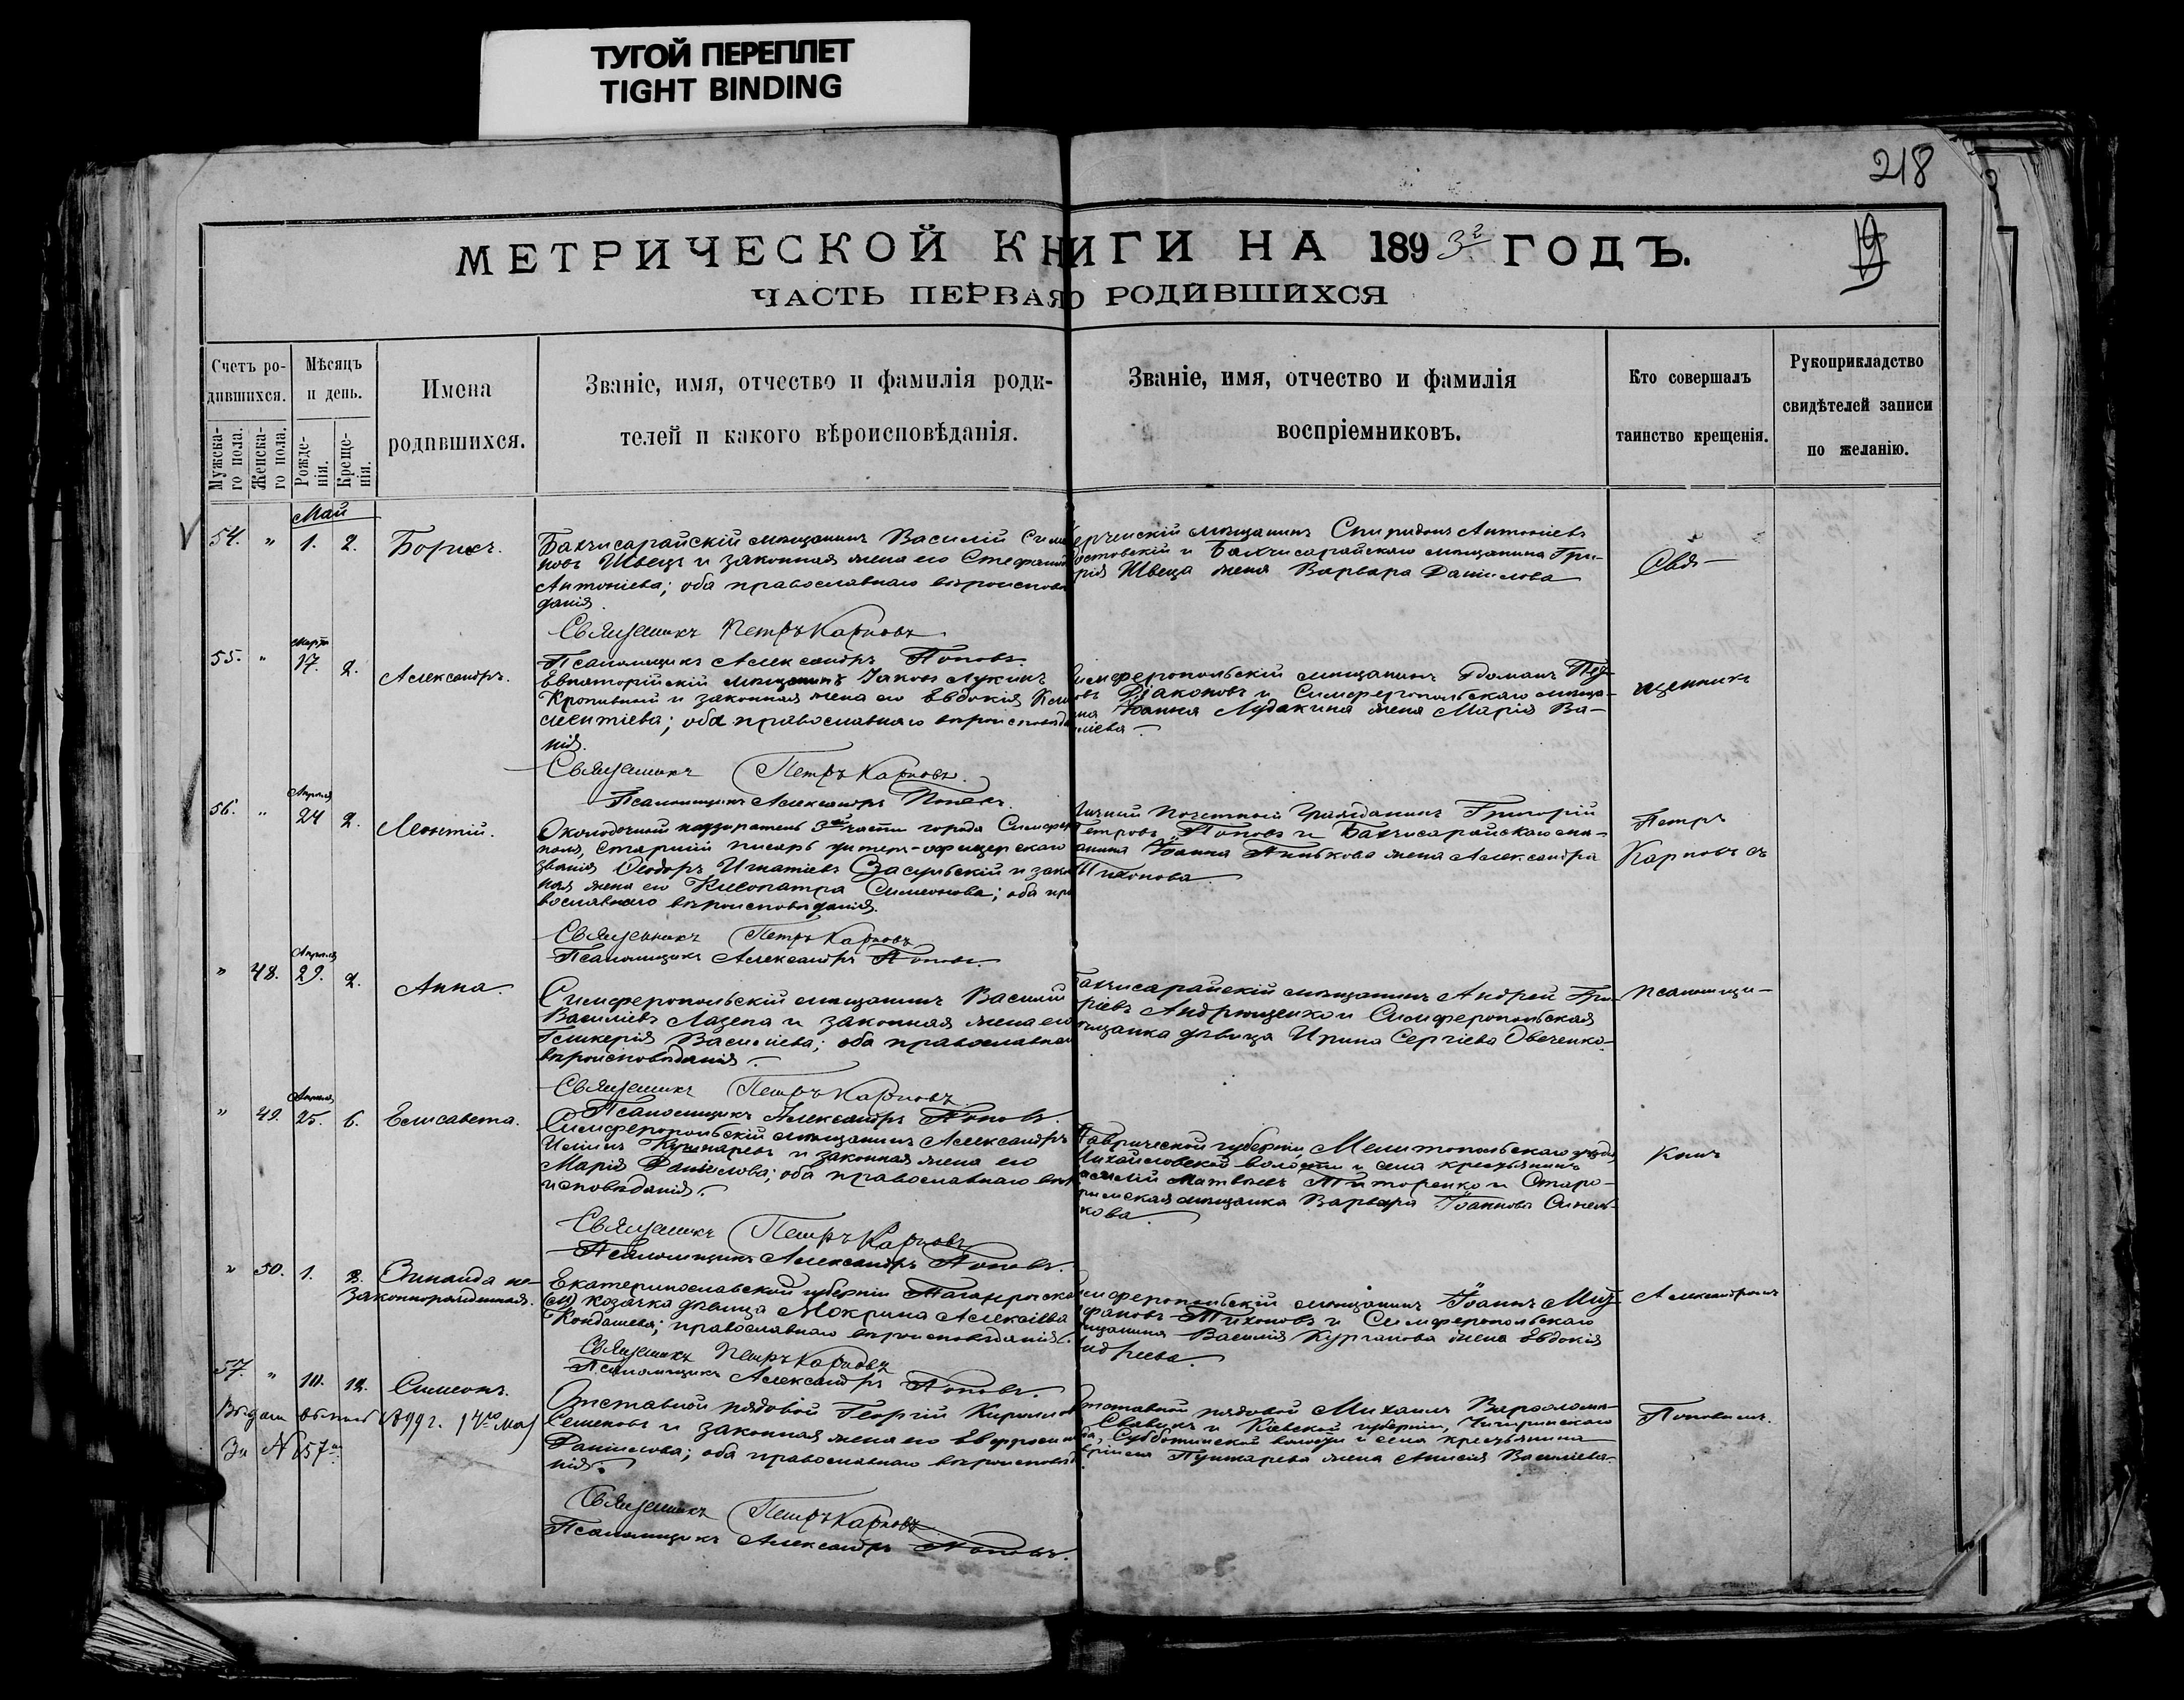 ТУГОЙ ПЕРЕПЛЕТ
TIGHT BINDING
218
19
МЕТРИЧЕСКОЙ КНИГИ НА 1893 ГОДЪ.
ЧАСТЬ ПЕРВАЯ О РОДИВШИХСЯ
Счетъ ро-
дившихся.
Мужска-
го пола.
Женска-
го пола.
Мѣсяцъ
и день.
Рожде-
нія.
Креще-
нія.
Имена
родившихся.
Званіе, имя, отчество и фамилія роди-
телей и какого вѣроисповѣданія.
Званіе, имя, отчество и фамилія
воспріемниковъ.
Кто совершалъ
таинство крещенія.
Рукоприкладство
свидѣтелей записи
по желанію.
Май
54. " 1. 2. Борисъ.
Бахчисарайскій мѣщанинъ Василій Симо
новъ Швецъ и законная жена его Стефанида
Антоніева; оба православнаго вѣроисповѣ
данія.
Священникъ Петръ Карповъ
Псаломщикъ Александръ Поповъ.
ерченскій мѣщанинъ Спиридонъ Антоніевъ
остовскій и Бахчисарайскаго мѣщанина Гри-
рія Швеца жена Варвара Данилова
Свя-
Марта
55. " 17. 2. Александръ.
Евпаторійскій мѣщанинъ Іаковъ Лукинъ
Кропивный и законная жена его Евдокія
ментіева; оба православнаго вѣроисповѣда
нія.
Священникъ Петръ Карповъ.
Псаломщикъ Александръ Поповъ.
имферопольскій мѣщанинъ
овъ Діаконовъ и Симферопольскаго мѣща-
ина Іоанна Лудакина жена Марія Ва-
иліева
щенникъ
Апрѣля
56. " 24 2. Леонтій.
Околодочный надзиратель 3ей части города Симферо
поля, старшій писарь унтеръ-офицерскаго
званія Ѳеодоръ Игнатіевъ Засульскій и закон
ная жена его Клеопатра Симеонова; оба пра
вославнаго вѣроисповѣданія.
Священникъ Петръ Карповъ
Псаломщикъ Александръ Поповъ.
Личный почетный гражданинъ Григорій
Петровъ Поповъ и Бахчисарайскаго мѣ-
анина Іоанна жена Александра
Тихонова
Петръ
Карповъ съ
Апрѣля
" 48. 29. 2. Анна.
Симферопольскій мѣщанинъ Василій
Василіевъ Лазепа и законная жена его
Гликерія Василіева; оба православнаго
вѣроисповѣданія.
Священникъ Петръ Карповъ
Псаломщикъ Александръ Поповъ.
Бахчисарайскій мѣщанинъ Андрей Гри-
ріевъ Андрющенко и Симферопольская
ѣщанка дѣвица Ирина Сергіева Овченко
псаломщи-
Апрѣля
" 49. 25. 6. Елисавета.
Симферопольскій мѣщанинъ Александръ
Ильинъ Кушнаревъ и законная жена его
Марія Данилова; оба православнаго вѣро
исповѣданія.
Священникъ Петръ Карповъ
Псаломщикъ Александръ Поповъ.
Таврической губерніи, Мелитопольскаго уѣзда
Михайловской волости и села крестьянинъ
асилій Матвѣевъ Титоренко и Старо-
рымская мѣщанка Варвара Іоаннова Синель-
кова
комъ
" 50. 1. 8. Зинаида не-
законнорожденная.
Екатеринославской губерніи Таганрогска
козачка дѣвица Мокрина Алексіева
Кондашева; православнаго вѣроисповѣданія.
Священникъ Петръ Карповъ
Псаломщикъ Александръ Поповъ.
имферопольскій мѣщанинъ Іоаннъ Мит-
офановъ Тихоновъ и Симферопольскаго
ѣщанина Василія Курганова жена Евдокія
ндреева.
Александромъ
57. " 10. 12. Симеонъ.
Отставной рядовой Георгій Кирилловъ
Семеновъ и законная жена его Евфросинія
Данилова; оба православнаго вѣроисповѣда
нія.
Священникъ Петръ Карповъ
Псаломщикъ Александръ Поповъ.
Отставной рядовой Михаилъ Варѳоломе-
и Кіевской губерніи, Чигиринскаго
Субботинской волости и села крестьянина
Пушкарева жена Анисія Василіева
Поповымъ.
1899 г. 14го мая
За № 157